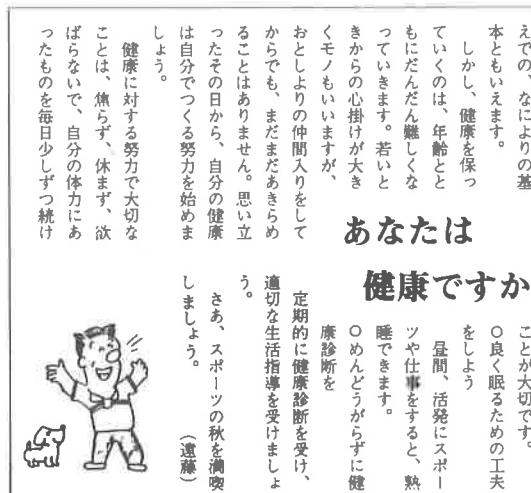 えでの、なによりの基
本ともいえます。
しかし、健康を保っ
ていくのは、年齢とと
もにだんだん難しくな
っていきます。若いと
きからの心掛けが大き
くモノもいいますが、
おとしよりの仲間入りをして
からでも、まだまだあきらめ
ることはありません。思い立
ったその日から、自分の健康
は自分でつくる努力を始めま
しょう。
健康に対する努力で大切な
ことは、焦らず、休まず、欲
ばらないで、自分の体力にあ
ったものを毎日少しずつ続け
あなたは
健康ですか
ことが大切です。
○良く眠るための工夫
をしよう
昼間、活発にスポー
ツや仕事をすると、熟
睡できます。
○めんどうがらずに健
康診断を
定期的に健康診断を受け、
適切な生活指導を受けましょ
う。
さあ、スポーツの秋を満喫
しましょう。
（遠藤）